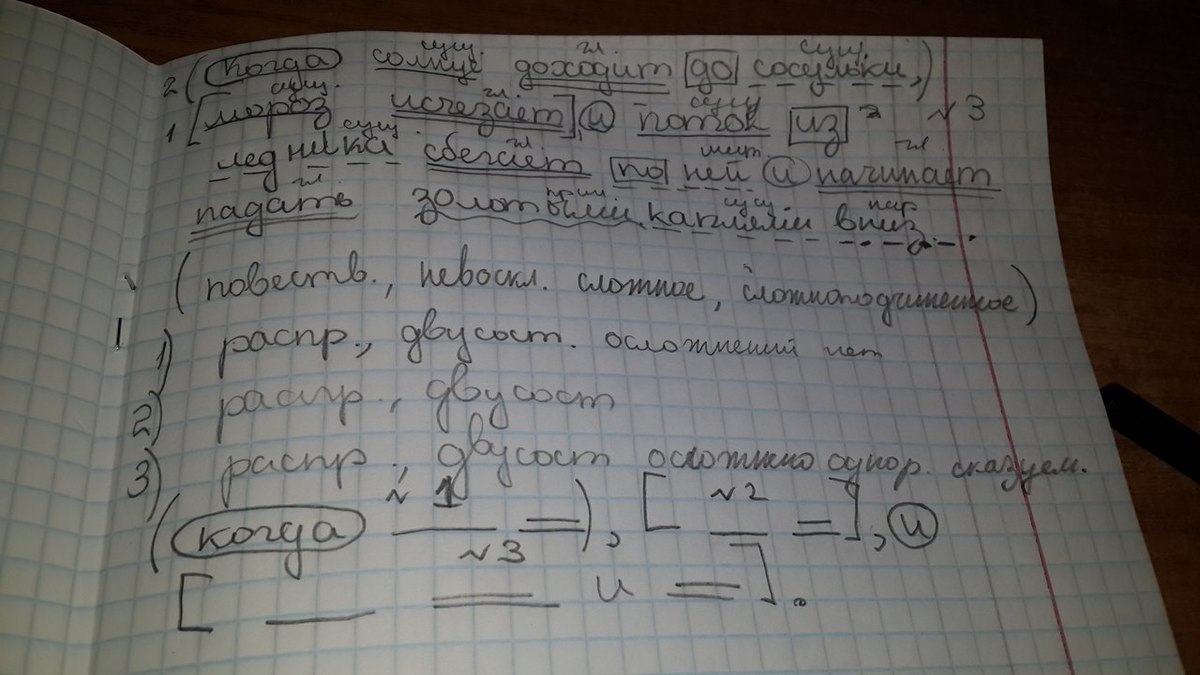 сущ. гл. сущ.
2 (когда солнце доходит до сосульки,)
сущ. гл. сущ
1 [мороз исчезает], и поток из 2 ~3
сущ гл. мест. гл.
ледника сбегает по ней и начинает
гл. прил сущ. нар
падать золотыми каплями вниз.
(повеств., невоскл. сложное, сложноподчиненное)
1) распр., двусост. осложнений нет
2) распр., двусост
3) распр., двусост осложнено однор. сказуем.
~1 ~2
(когда ), [ ], и
~3
[ и ].